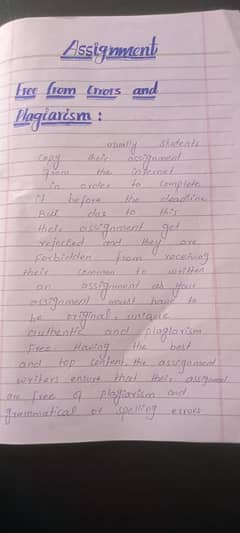 Assignment
Free from Errors and
Plagiarism :
usually students
copy their assignment
from the internet
in order to complete
it before the deadline
But due to this
their assignment get
rejected and they are
forbidden from receiving
their common to written
an assignment as your
assignment must have to
be original, unique
authentic and plagiarism
Free Having the best
and top content, the assignment
writers ensure that their assignment
are free of plagiarism and
grammatical or spelling errors